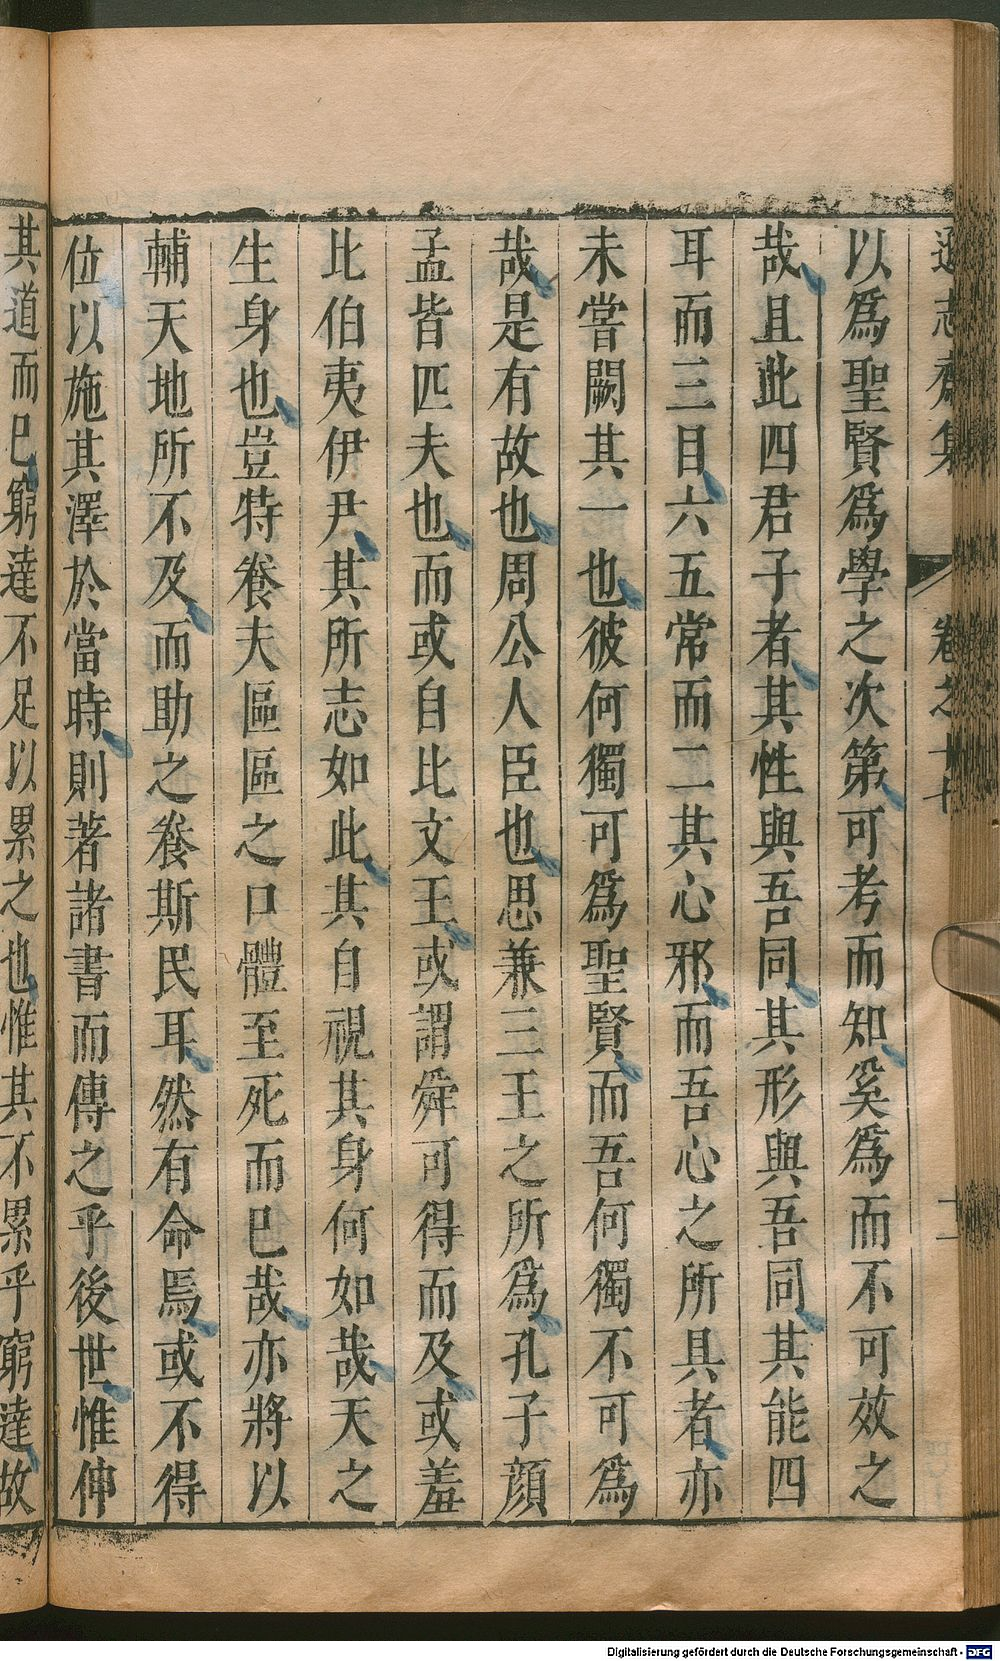 遜志齋集 卷之十七 十一
以爲聖賢爲學之次第可考而知奚爲而不可效之
哉且此四君子者其性與吾同其形與吾同其能四
耳而三目六五常而二其心邪而吾心之所具者亦
未嘗闕其一也彼何獨可爲聖賢而吾何獨不可爲
哉是有故也周公人臣也思兼三王之所爲孔子顔
孟皆匹夫也而或自比文王或謂舜可得而及或羞
比伯夷伊尹其所志如此其自視其身何如哉天之
生身也豈特養夫區區之口體至死而已哉亦將以
輔天地所不及而助之養斯民耳然有命焉或不得
位以施其澤於當時則著諸書而傳之乎後世惟伸
其道而已窮達不足以累之也惟其不累乎窮達故
Digitalisierung gefördert durch die Deutsche Forschungsgemeinschaft - DFG